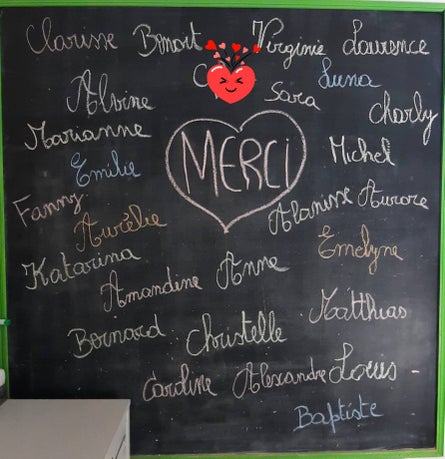 Clarisse Benoit Virginie Laurence
Luna
Alvine Sara Charly
Marianne
Michel
MERCI
Emilie
Fanny Alanisse Aurore
Aurélie
Emelyne
Katarina Anne
Amandine
Matthias
Bernard Christelle
Caroline Alexandre Louis -
Baptiste